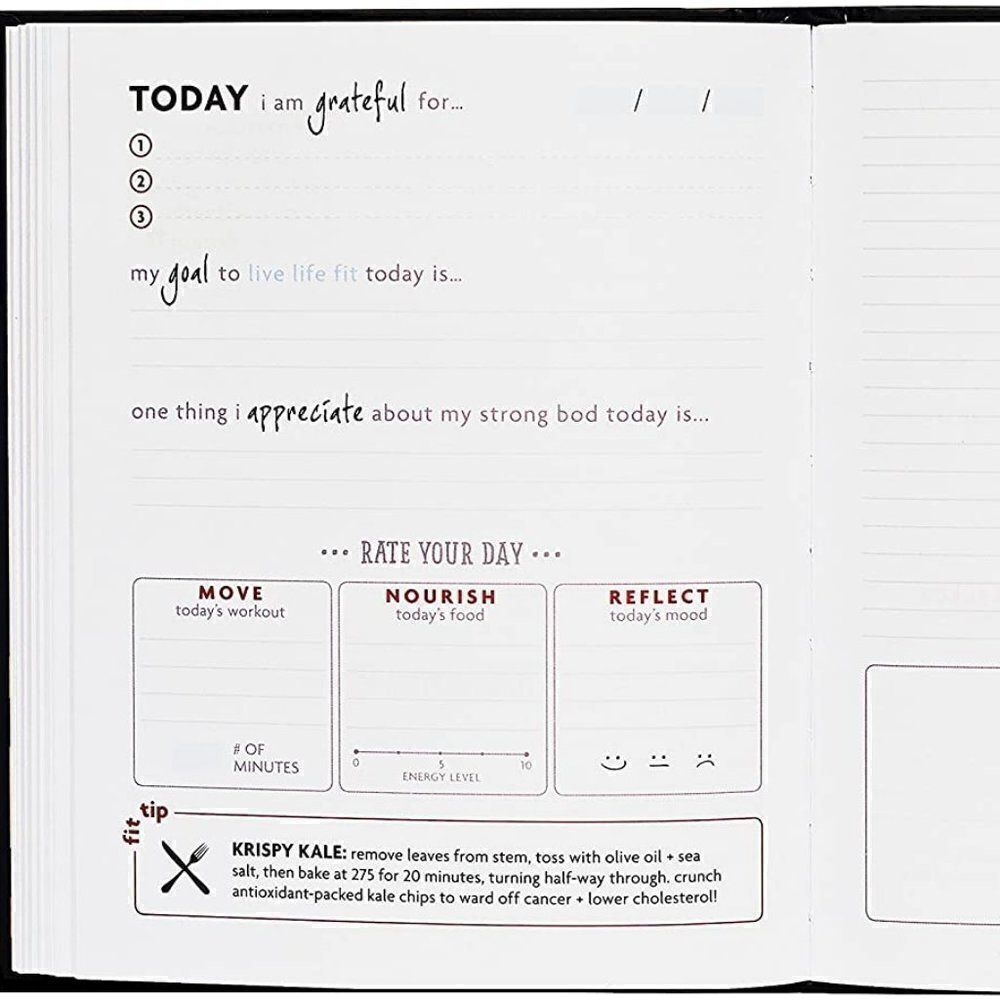 TODAY i am grateful for... / /
1
2
3
my goal to live life fit today is...
one thing i appreciate about my strong bod today is...
••• RATE YOUR DAY •••
MOVE
today's workout
# OF
MINUTES
NOURISH
today's food
0 5 10
ENERGY LEVEL
REFLECT
today's mood
fit tip
KRISPY KALE: remove leaves from stem, toss with olive oil + sea
salt, then bake at 275 for 20 minutes, turning half-way through. crunch
antioxidant-packed kale chips to ward off cancer + lower cholesterol!